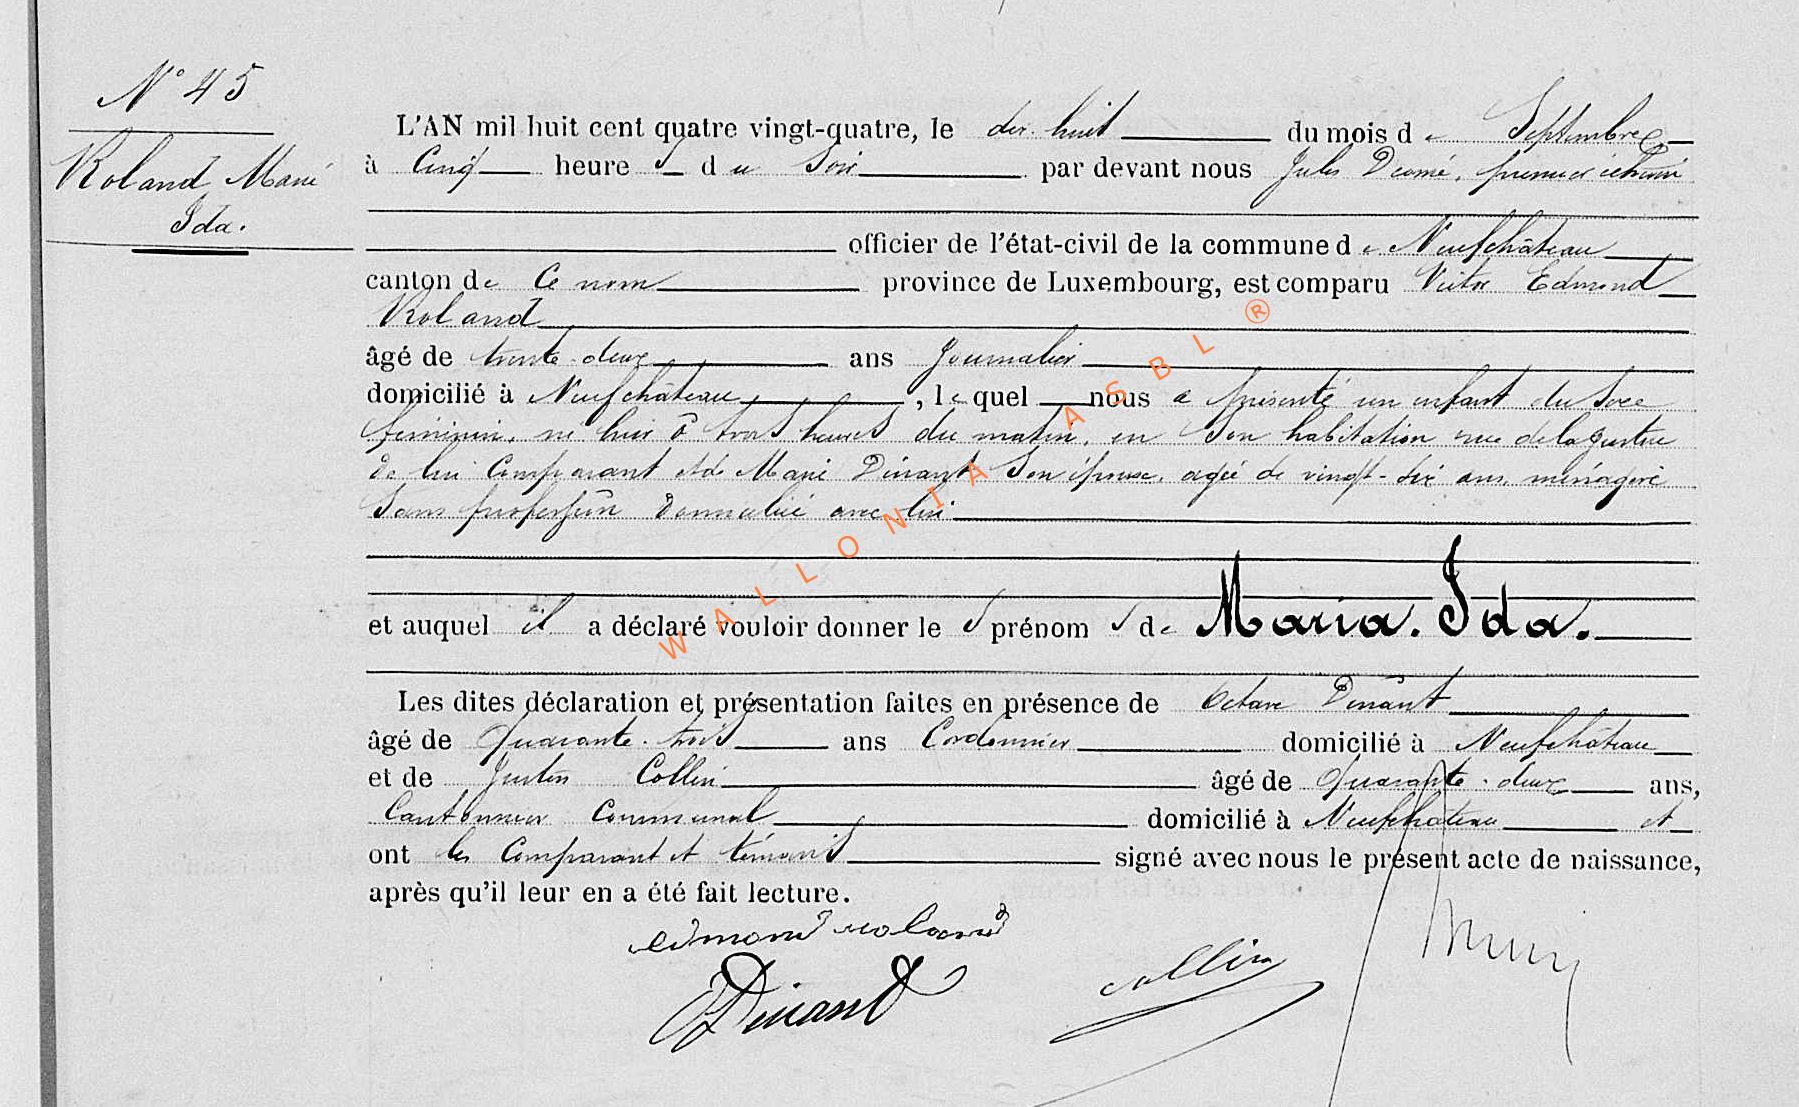 N° 45
Roland, Marie
Ida.
L'AN mil huit cent quatre vingt-quatre, le dix-huit du mois de Septembre
à Cinq heures du Soir par devant nous Jules premier échevin
officier de l'état-civil de la commune de Neufchâteau
canton de Ce nom province de Luxembourg, est comparu Victor Edmond
Roland
âgé de trente-deux ans Journalier
domicilié à Neufchâteau, lequel nous a présenté un enfant du Sexe
féminin, né hier à trois heures du matin, en Son habitation rue de la Justice
de lui Comparant et de Marie Dinant Son épouse, agée de vingt-six ans, ménagère
Sans profession Domiciliée avec lui
et auquel il a déclaré vouloir donner les prénoms de Maria. Ida.
Les dites déclaration et présentation faites en présence de Octave Dinant
âgé de Quarante-trois ans Cordonnier domicilié à Neufchâteau
et de Justin Collin âgé de Quarante-deux ans,
Cantonnier Communal domicilié à Neufchâteau et
ont les Comparant et témoins signé avec nous le présent acte de naissance,
après qu'il leur en a été fait lecture.
edmond roland
O Dinant
collin
WALLONIA ASBL ®